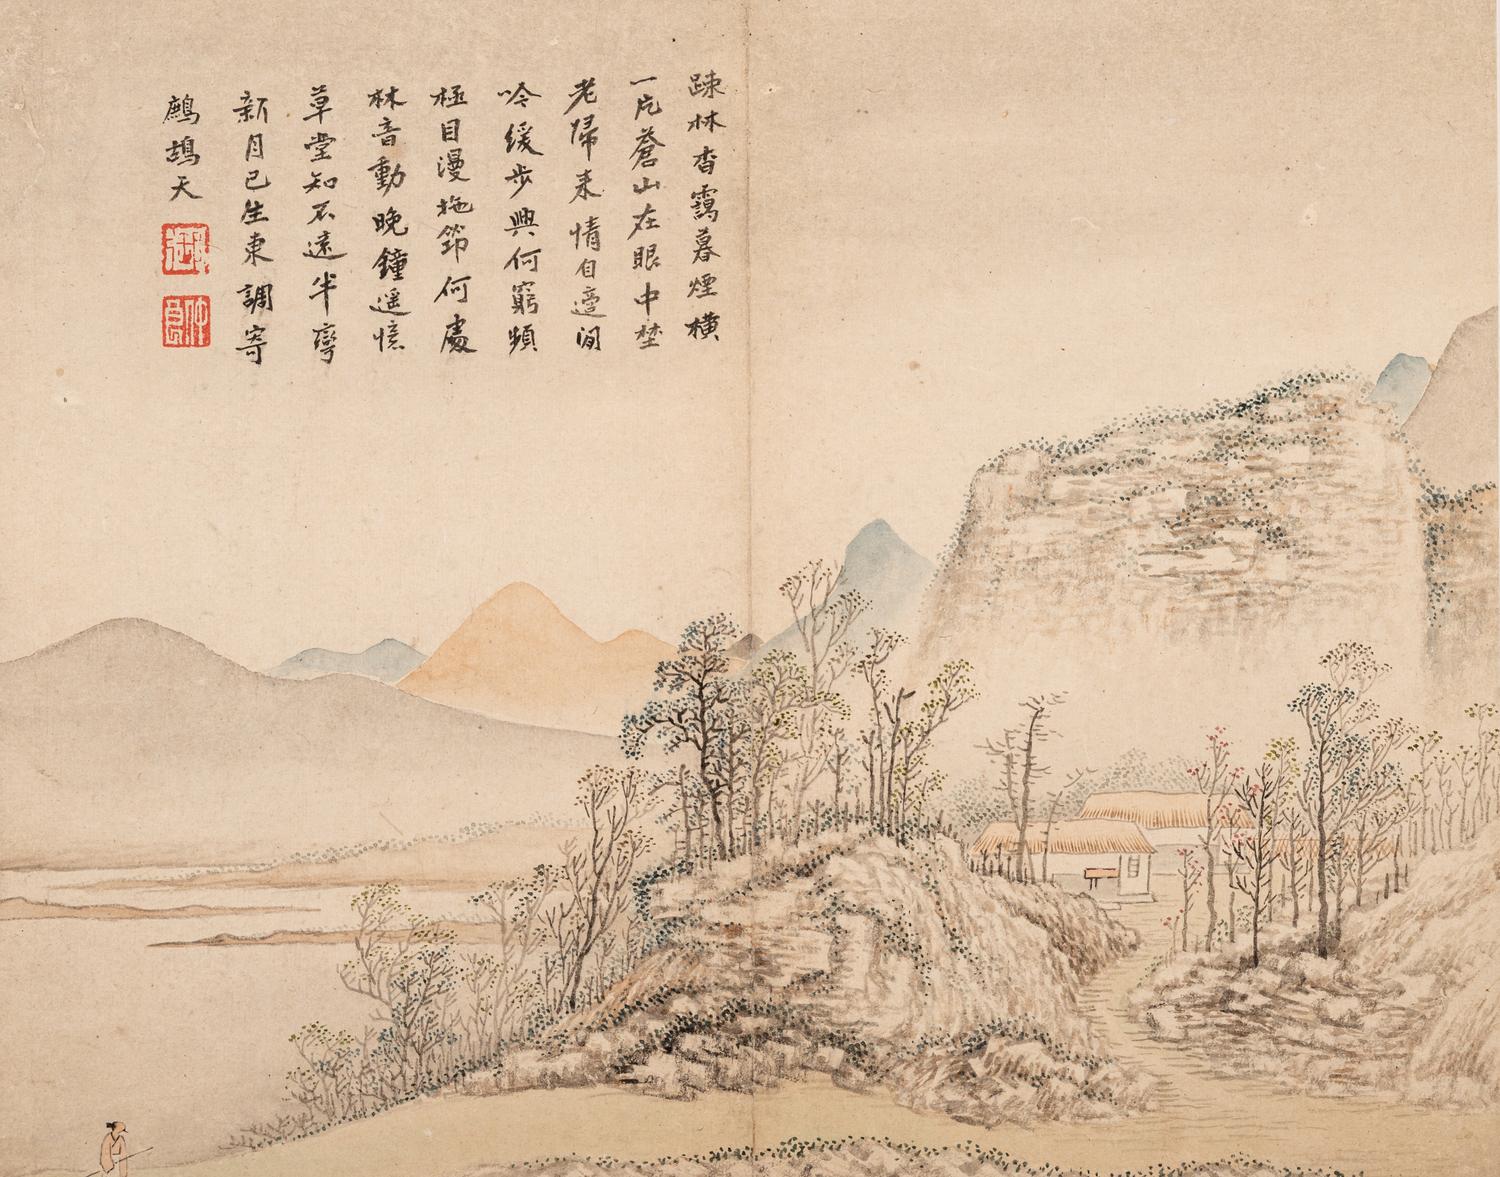 疎林杳靄暮煙橫
一片蒼山在眼中埜
老歸來情自適閒
吟緩步興何窮頻
極目漫拖笻何處
林音動晚鐘遥憶
草堂知不遠半彎
新月已生東調寄
鷓鴣天